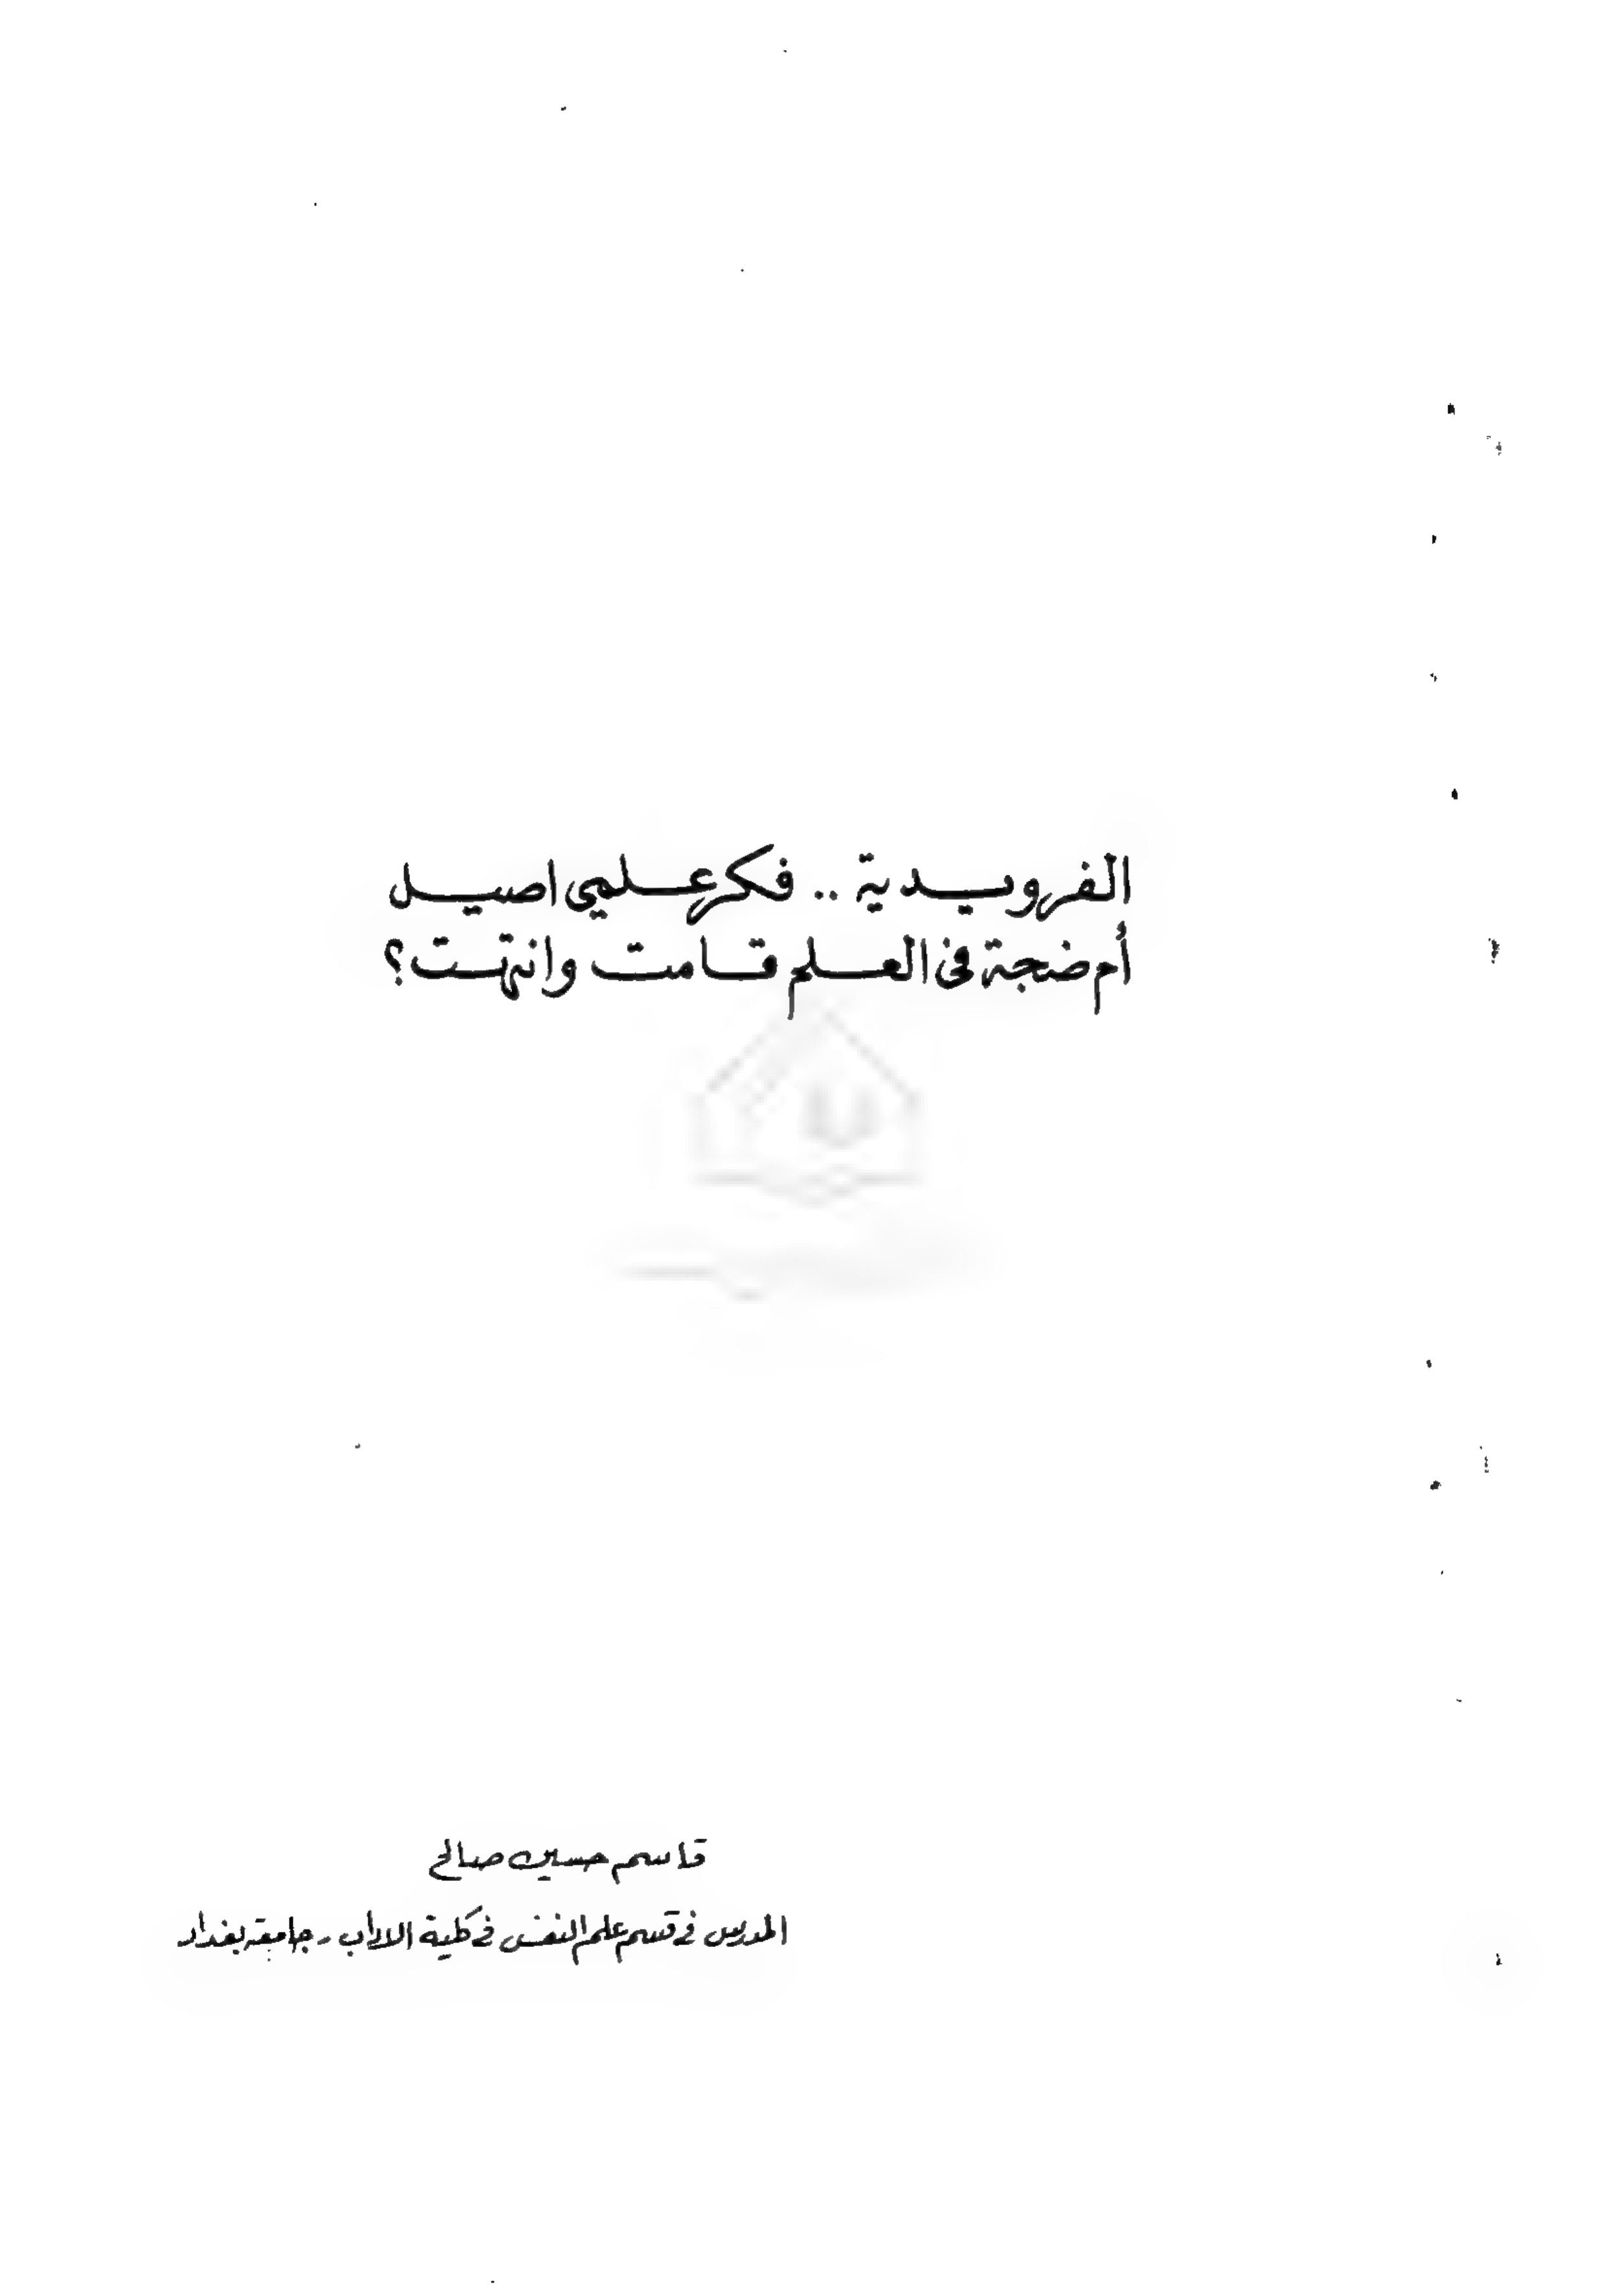 الفرويدية .. فكر علمي اصيل
أم ضجة في العلم قامت وانتهت؟
قاسم حسين صالح
المدرس في قسم علم النفس في كلية الاداب - جامعة بغداد